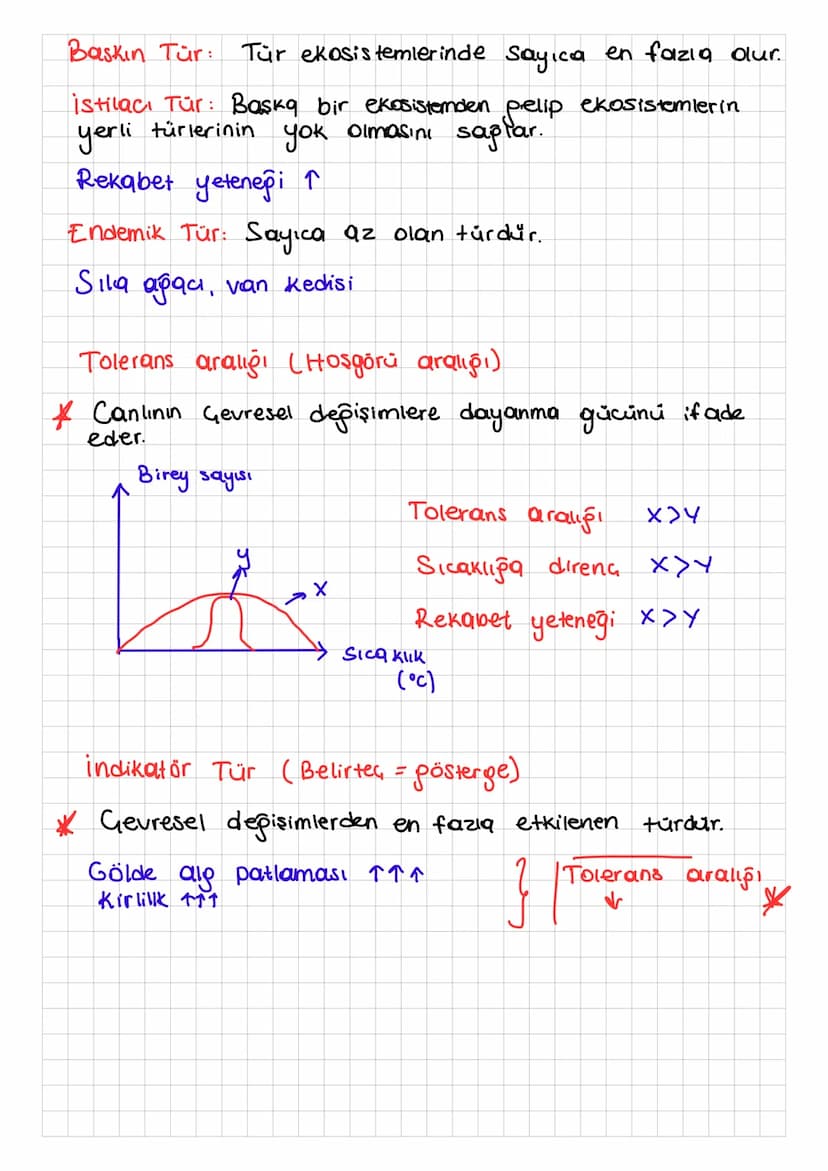 Baskın Tür: Tür ekosistemlerinde sayıca en fazla olur.
İstilacı Tür: Başka bir ekosistemden gelip ekosistemlerin
yerli türlerinin yok olmasını sağlar.
Rekabet yeteneği ↑
Endemik Tür: Sayıca az olan türdür.
Sıla ağacı, van kedisi
Tolerans aralığı (Hoşgörü aralığı)
* Canlının çevresel değişimlere dayanma gücünü ifade
eder.
Birey sayısı
y
x
Sıcaklık
(°C)
Tolerans aralığı X>Y
Sıcaklığa direnç X>Y
Rekabet yeteneği X>Y
İndikatör Tür (Belirteç = gösterge)
* Çevresel değişimlerden en fazla etkilenen türdür.
Gölde alg patlaması ↑↑↑
Kirlilik ↑↑↑
Tolerans aralığı
↓ *